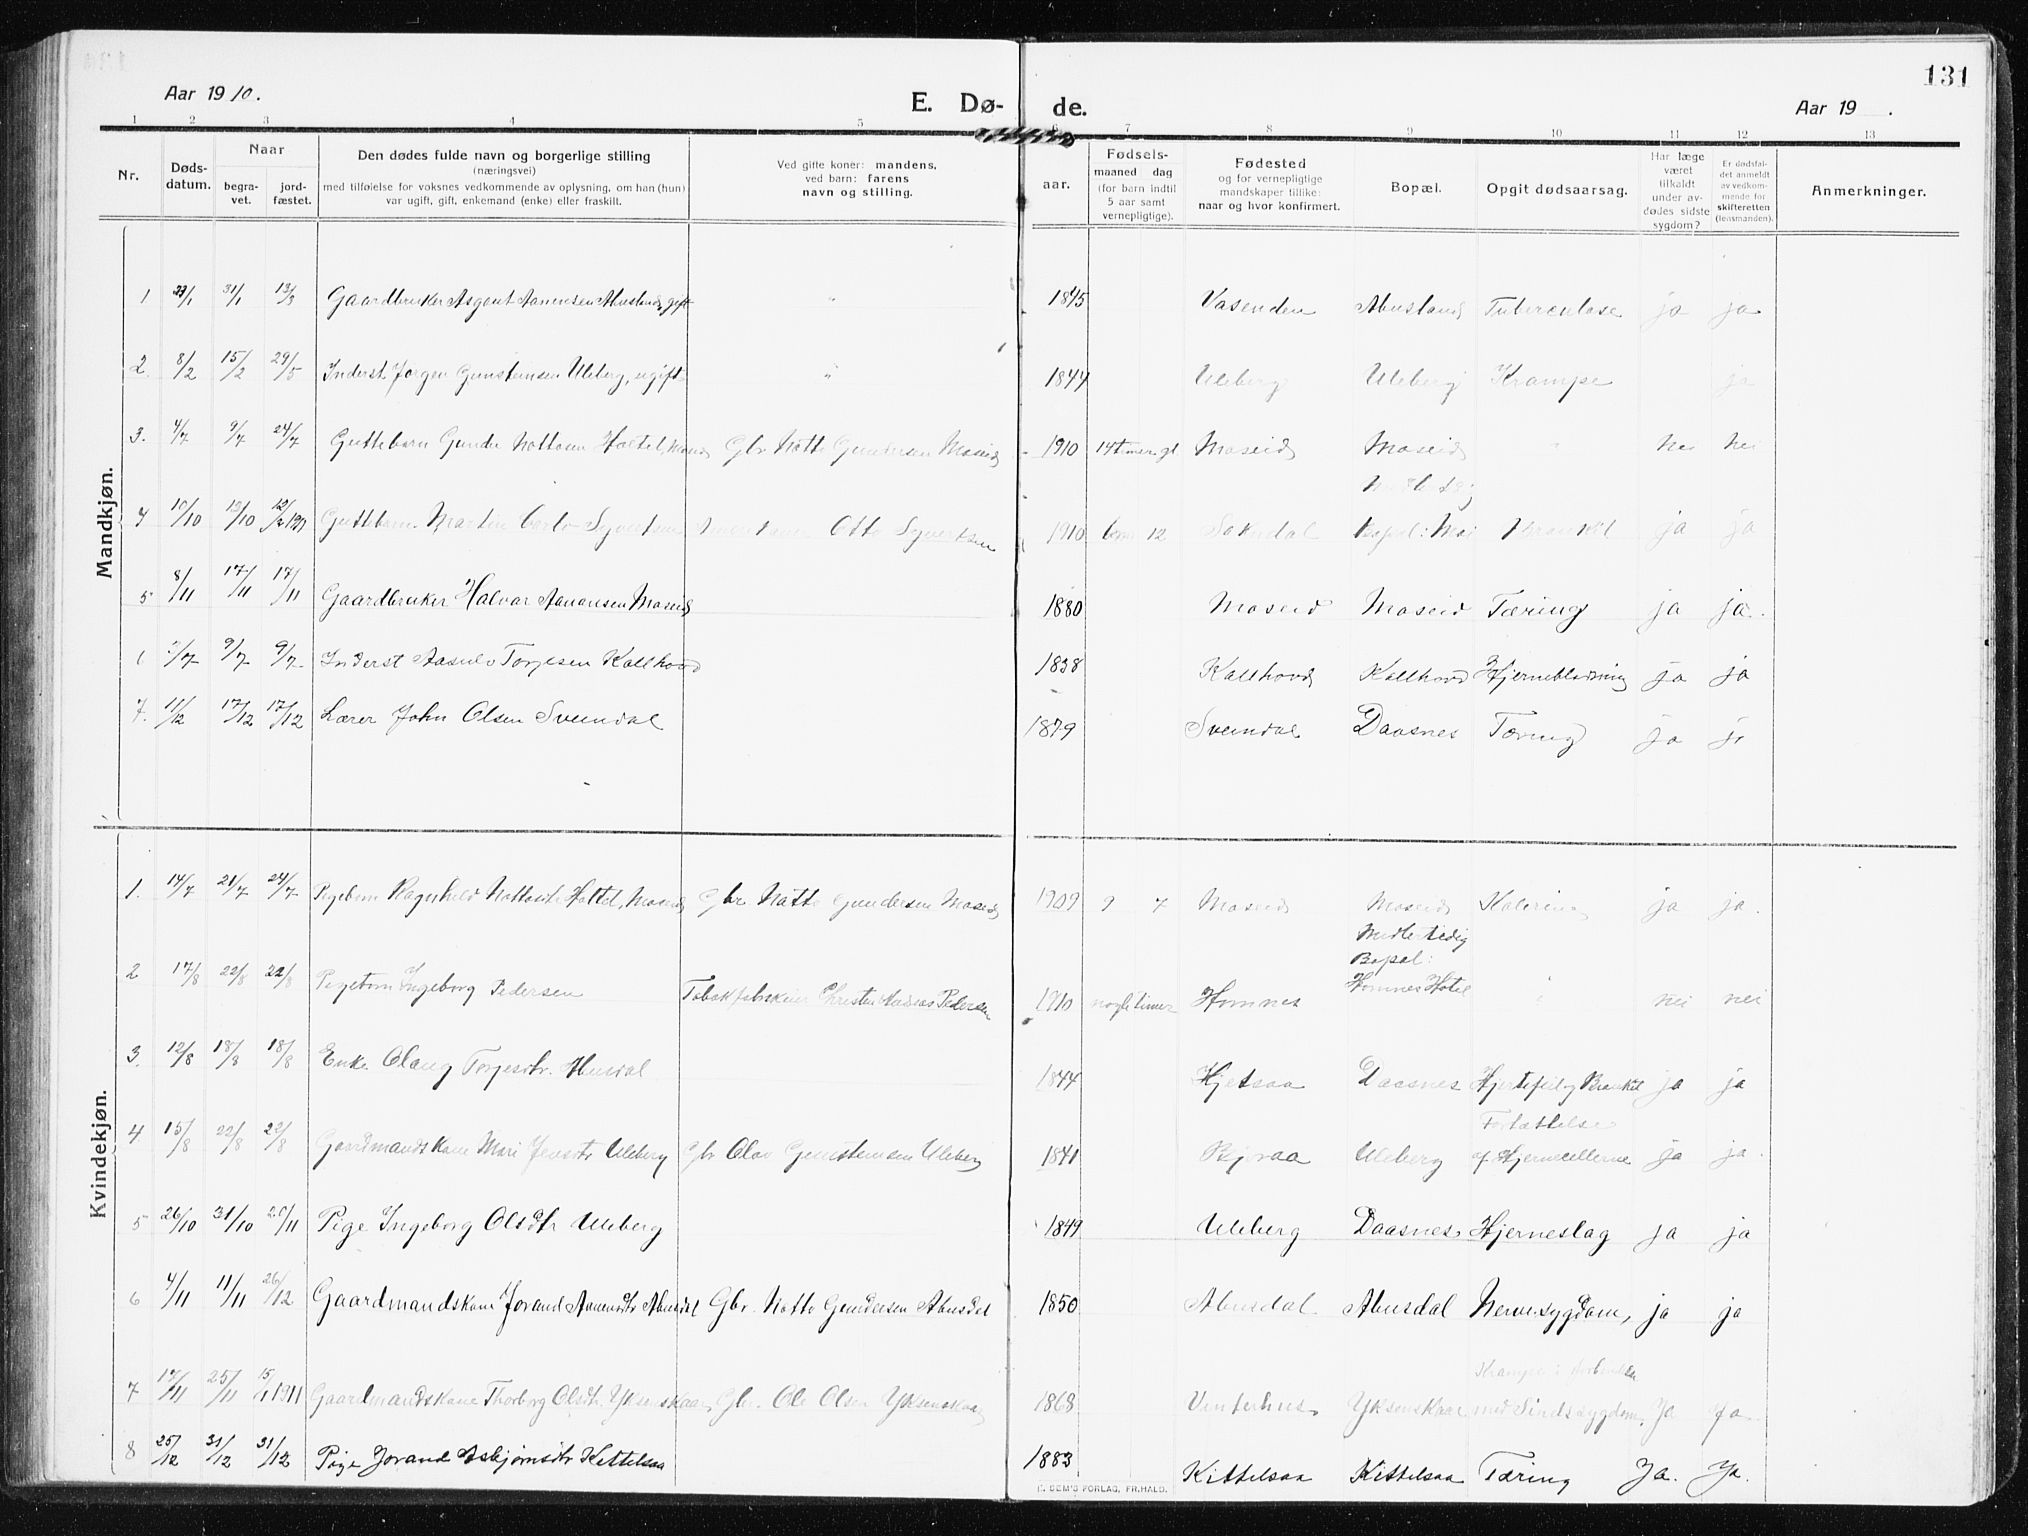 131
Aar 1910.
E. Dø- de.
Aar 19 .
1 2 3 4 5 6 7 8 9 10 11 12 13
Nr.
Døds-
datum.
Naar
begra-
vet.
jord-
fæstet.
Den dødes fulde navn og borgerlige stilling
(næringsvei)
med tilføielse for voksnes vedkommende av oplysning, om han (hun)
var ugift, gift, enkemand (enke) eller fraskilt.
Ved gifte koner: mandens,
ved barn: farens
navn og stilling.
aar.
Fødsels-
maaned dag
(for barn indtil
5 aar samt
vernepligtige).
Fødested
og for vernepligtige
mandskaper tillike:
naar og hvor konfirmert.
Bopæl.
Opgit dødsaarsag.
Har læge
været
tilkaldt
under av-
dødes sidste
sygdom?
Er dødsfal-
det anmeldt
av vedkom-
mende for
skifteretten
(lensmanden).
Anmerkninger.
Mandkjøn.
1 31/1 13/3 Gaardbruker Aanensen Abusland, gift " 1845 Vasenden Abusland Tuberculose ja ja
2. 8/2 15/2 29/5 Inderst Jørgen Gunstensen Uleberg, ugift " 1844 Uleberg Uleberg Krampe ja
3. 4/7 9/7 24/7 Guttebarn Gunder Holtet, Moseid Gbr. Gundersen Moseid 1910 14 timer gl. Moseid Moseid " nei nei
4 10/10 13/10 Guttebarn Martin Syvertsen Otto Syvertsen 1910 12 ja ja
5 8/11 17/11 17/11 Gaardbruker Halvor Aanonsen Moseid 1880 Moseid Moseid Tæring ja ja.
6 9/7 9/7 Inderst Torjesen Kallhovd 1838 Kallhovd Kallhovd Hjerneblødning ja ja
7. 11/12 17/12 17/12 Lærer John Olsen Sveindal 1879 Sveindal Daasnes Tæring ja ja
Kvindekjøn.
1. 14/7 21/7 24/7 Pigebarn Ragnhild Holtet, Moseid Gbr. Gundersen Moseid 1909 9 7 Moseid Moseid ja ja.
Midlertidig
Bopæl:
2 17/8 22/8 22/8 Pigebarn Ingeborg Pedersen Christen Pedersen 1910 nogle timer Homnes Homnes Hotel " nei nei
3. 12/8 18/8 18/8 Enke Olaug Torjesdtr. Husdal 1844 Hjetsaa Daasnes Hjertefeil og ja ja
Forkættelse
4 15/8 22/8 22/8 Gaardmandskone Mari Uleberg Gbr Olav Gunstensen Uleberg 1841 Bjoraa Uleberg af Hjernecellerne ja ja.
5 26/10 31/10 Pige Ingeborg Olsdtr Uleberg 1849 Uleberg Daasnes Hjerneslag ja ja
6 4/11 11/11 26/12 Gaardmandskone Jorand Abusdal Gbr. Gundersen Abusdal 1850 Abusdal Abusdal Nervesygdom, ja ja
7 17/11 25/11 Gaardmandskone Thorborg Olsdtr. Yksenskaar Gbr. Ole Olsen Yksenskaar 1868 Vinterhus Yksenskaar med Sindssygdom. Ja Ja.
8 25/12 31/12 31/12 Pige Jorand Asbjørnsdtr Kittelsaa 1883 Kittelsaa Kittelsaa Tæring Ja. Ja.
SEM'S FORLAG, FR.HALD.